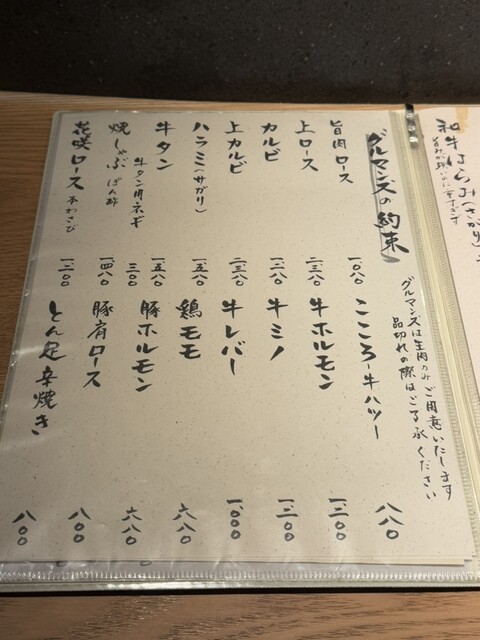 和牛はらみ(さがり)
グルマンズの約束
グルマンズは生肉のみご用意いたします
品切れの際はご了承ください
旨肉ロース 一、〇八〇
上ロース 二、三八〇
カルビ 一、二八〇
上カルビ 二、三八〇
ハラミ(サガリ) 一、五八〇
牛タン 一、五八〇
牛タン用ネギ 三〇〇
焼しゃぶ ぽん酢 一、四八〇
花咲ロース 本わさび 一、三〇〇
こころー牛ハツー 八八〇
牛ホルモン 一、二〇〇
牛ミノ 一、二〇〇
牛レバー 一、〇〇〇
鶏モモ 六八〇
豚ホルモン 六八〇
豚肩ロース 八〇〇
とん足 辛焼き 八〇〇